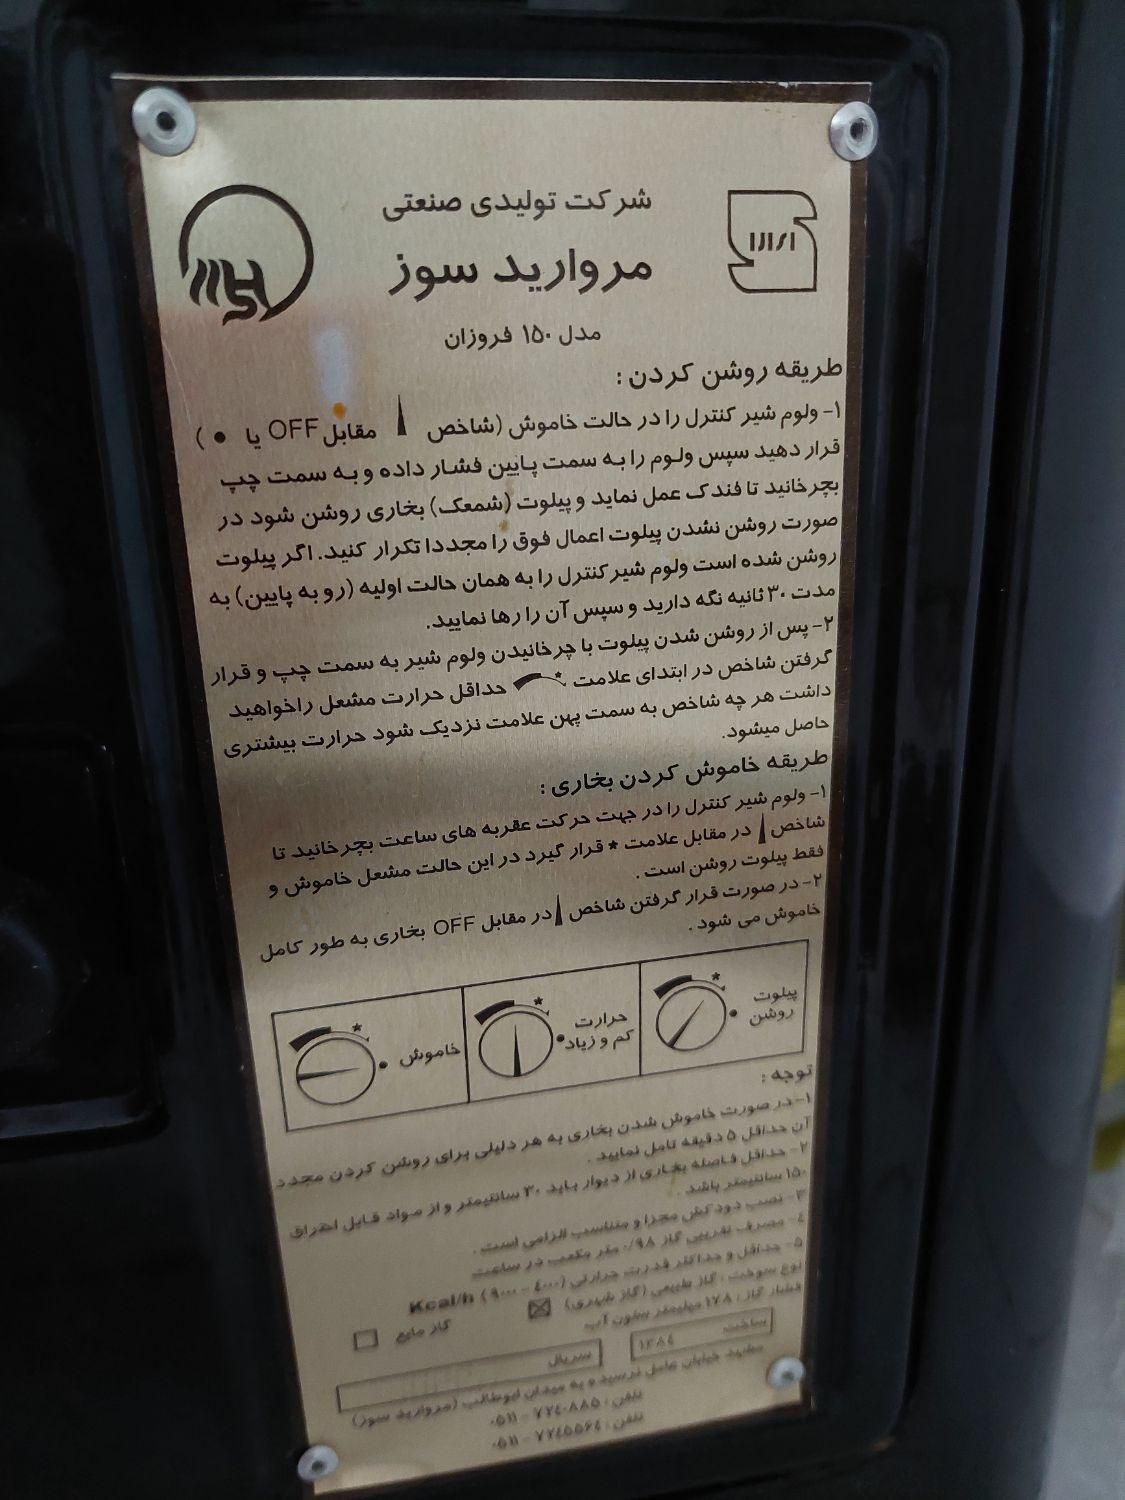 شرکت تولیدی صنعتی
مروارید سوز
مدل ۱۵۰ فروزان
طریقه روشن کردن :
۱- ولوم شیر کنترل را در حالت خاموش (شاخص مقابل OFF یا ● )
قرار دهید سپس ولوم را به سمت پایین فشار داده و به سمت چپ
بچرخانید تا فندک عمل نماید و پیلوت (شمعک) بخاری روشن شود در
صورت روشن نشدن پیلوت اعمال فوق را مجددا تکرار کنید. اگر پیلوت
روشن شده است ولوم شیر کنترل را به همان حالت اولیه (رو به پایین) به
مدت ۳۰ ثانیه نگه دارید و سپس آن را رها نمایید.
۲- پس از روشن شدن پیلوت با چرخانیدن ولوم شیر به سمت چپ و قرار
گرفتن شاخص در ابتدای علامت حداقل حرارت مشعل را خواهید
داشت هر چه شاخص به سمت پهن علامت نزدیک شود حرارت بیشتری
حاصل میشود.
طریقه خاموش کردن بخاری :
۱- ولوم شیر کنترل را در جهت حرکت عقربه های ساعت بچرخانید تا
شاخص در مقابل علامت * قرار گیرد در این حالت مشعل خاموش و
فقط پیلوت روشن است .
۲- در صورت قرار گرفتن شاخص در مقابل OFF بخاری به طور کامل
خاموش می شود .
پیلوت
روشن
حرارت
کم و زیاد
خاموش
توجه :
۱- در صورت خاموش شدن بخاری به هر دلیلی برای روشن کردن مجدد
آن حداقل ۵ دقیقه تامل نمایید .
۲- حداقل فاصله بخاری از دیوار باید ۳۰ سانتیمتر و از مواد قابل احتراق
۱۵۰ سانتیمتر باشد .
۳- نصب دودکش مجزا و متناسب الزامی است .
٤- مصرف تقریبی گاز ۰/۹۸ متر مکعب در ساعت
۵- حداقل و حداکثر قدرت حرارتی (٤۰۰۰ - ۹۰۰۰) Kcal/h
نوع سوخت : گاز طبیعی (گاز شهری) گاز مایع
فشار گاز : ۱۷۸ میلیمتر ستون آب
ساخت ۱۳۸٤ سریال
مشهد خیابان عامل نرسیده به میدان ابوطالب (مروارید سوز)
تلفن : ۷۲٤۰۸۸۵ - ۰۵۱۱
تلفن : ۷۲٤۵۵۶٤ - ۰۵۱۱